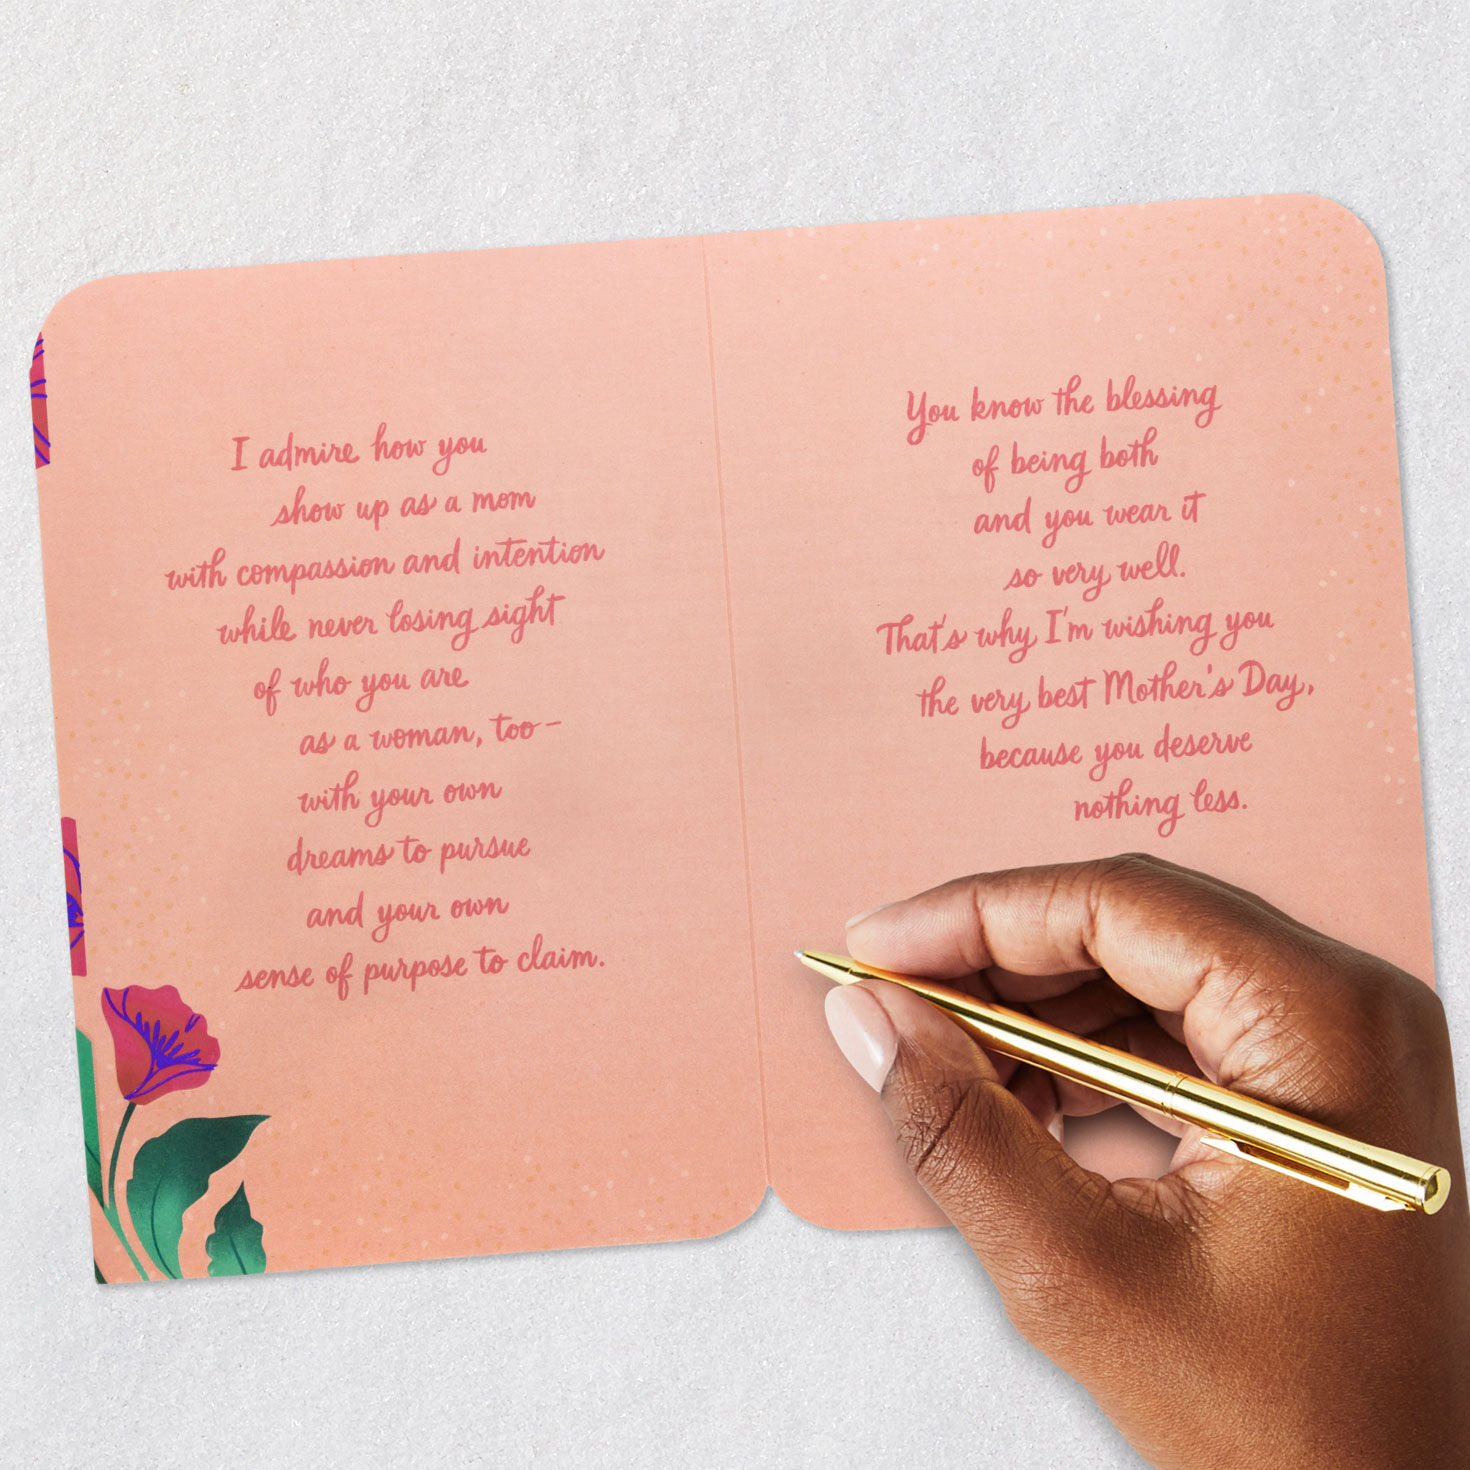 I admire how you
show up as a mom
with compassion and intention
while never losing sight
of who you are
as a woman, too–
with your own
dreams to pursue
and your own
sense of purpose to claim.
You know the blessing
of being both
and you wear it
so very well.
That's why I'm wishing you
the very best Mother's Day,
because you deserve
nothing less.